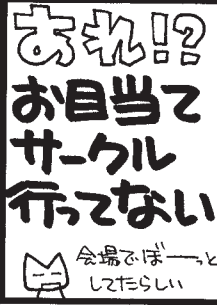 あれ!?
お目当て
サークル
行ってない
会場でぼーっと
してたらしい